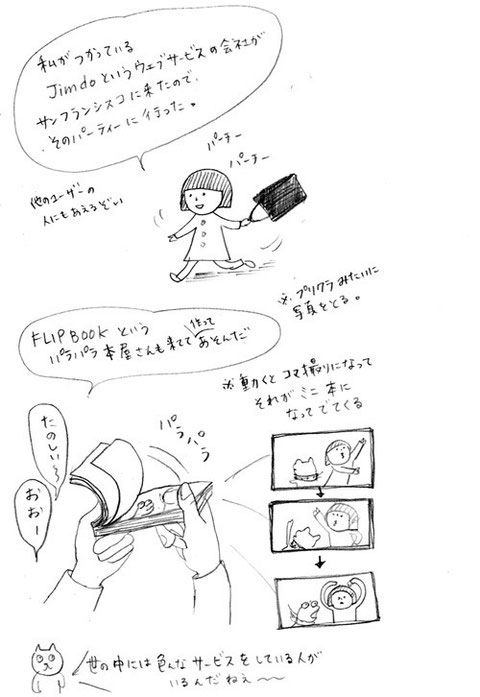 私がつかっている
Jimdoというウェブサービスの会社が
サンフランシスコに来たので、
そのパーティーに行った。
パーチー
パーチー
他のユーザーの
人にもあえるぞい
※プリクラみたいに
写真をとる。
FLIPBOOKという
パラパラ本屋さんも来てて作ってあそんだ
※動くとコマ撮りになって
それがミニ本に
なってでてくる
たのしい〜
おおー
パラ
パラ
世の中には色んなサービスをしている人が
いるんだねぇ〜〜